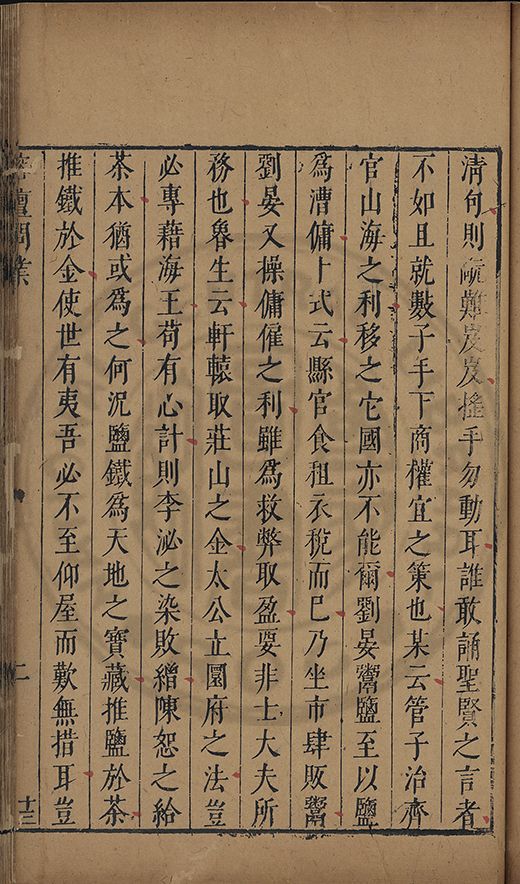 清句則疏難岌岌搖手勿動耳誰敢誦聖賢之言者
不如且就數子手下商權宜之策也某云管子治齊
官山海之利移之它國亦不能爾劉晏鬻鹽至以鹽
為漕傭卜式云縣官食租衣稅而已乃坐市肆販鬻
劉晏又操傭僱之利雖為救弊取盈要非士大夫所
務也魯生云軒轅取莊山之金太公立圜府之法豈
必專藉海王苟有心計則李泌之染敗繒陳恕之給
茶本猶或為之何況鹽鐵為天地之寶藏推鹽於茶
推鐵於金使世有夷吾必不至仰屋而歎無措耳豈
壇問業
二
十三